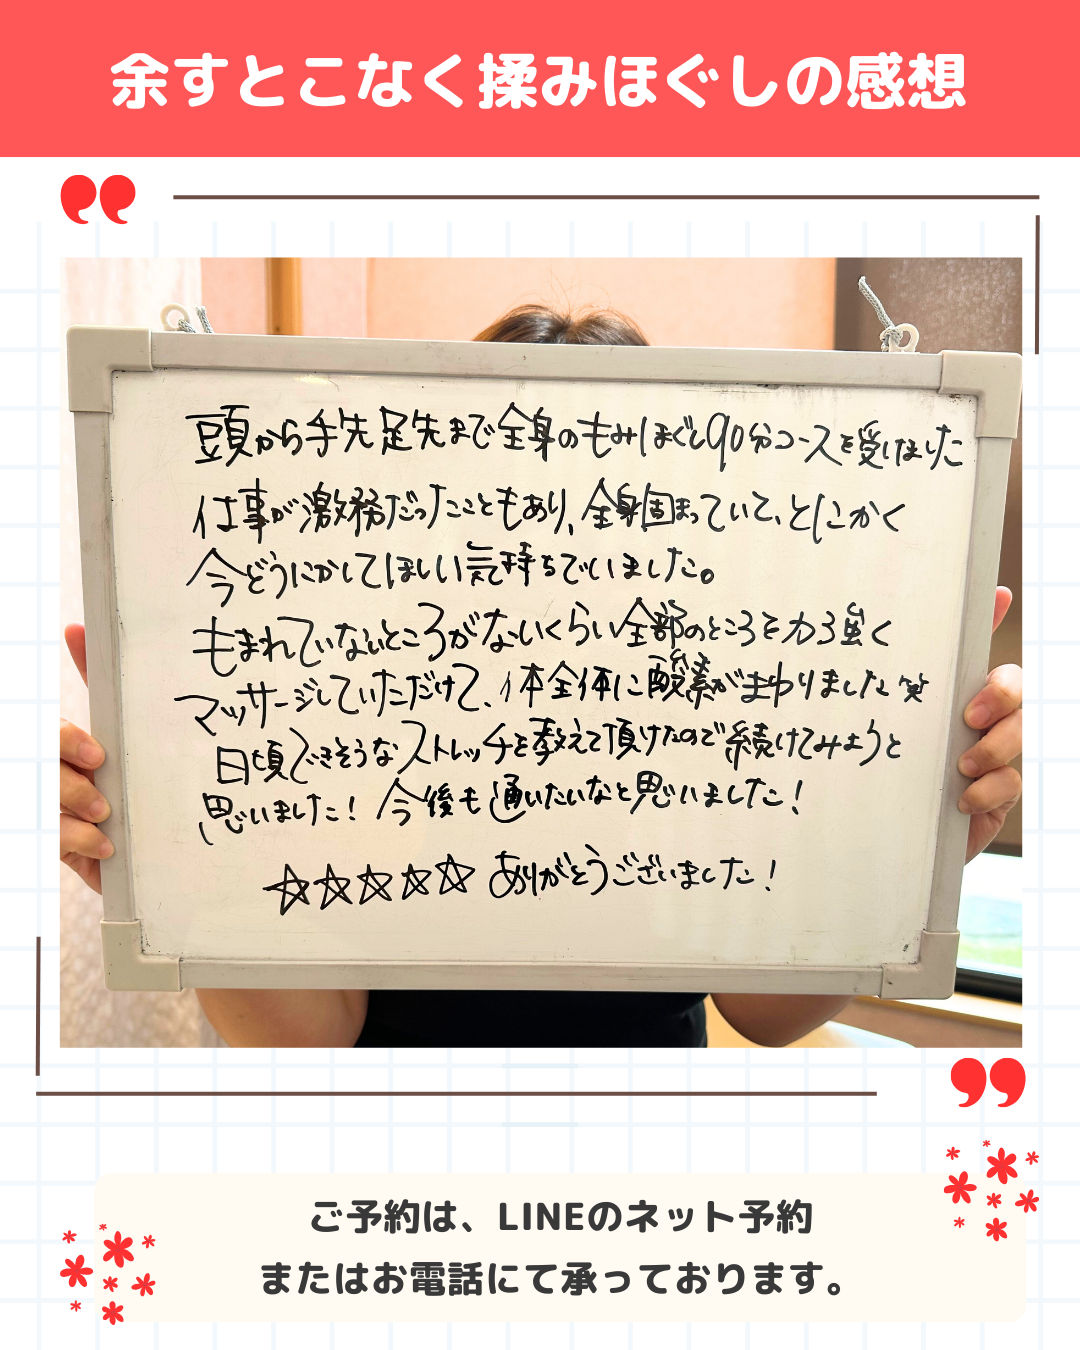 余すとこなく揉みほぐしの感想
頭から手先足先まで全身のもみほぐし90分コースを受けました
仕事が激務だったこともあり、全身固まっていて、とにかく
今どうにかしてほしい気持ちでいました。
もまれていないところがないくらい全部のところを力強く
マッサージしていただけて、体全体に酸素がまわりました笑
日頃できそうなストレッチを教えて頂けたので続けてみようと
思いました！今後も通いたいなと思いました！
☆☆☆☆☆ ありがとうございました！
ご予約は、LINEのネット予約
またはお電話にて承っております。